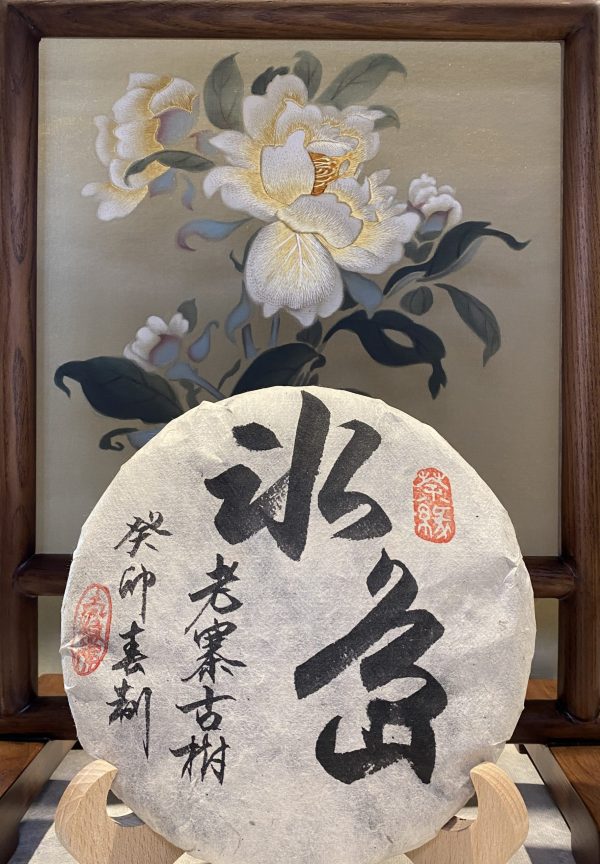 冰岛
老寨古树
癸卯春制
茶缘